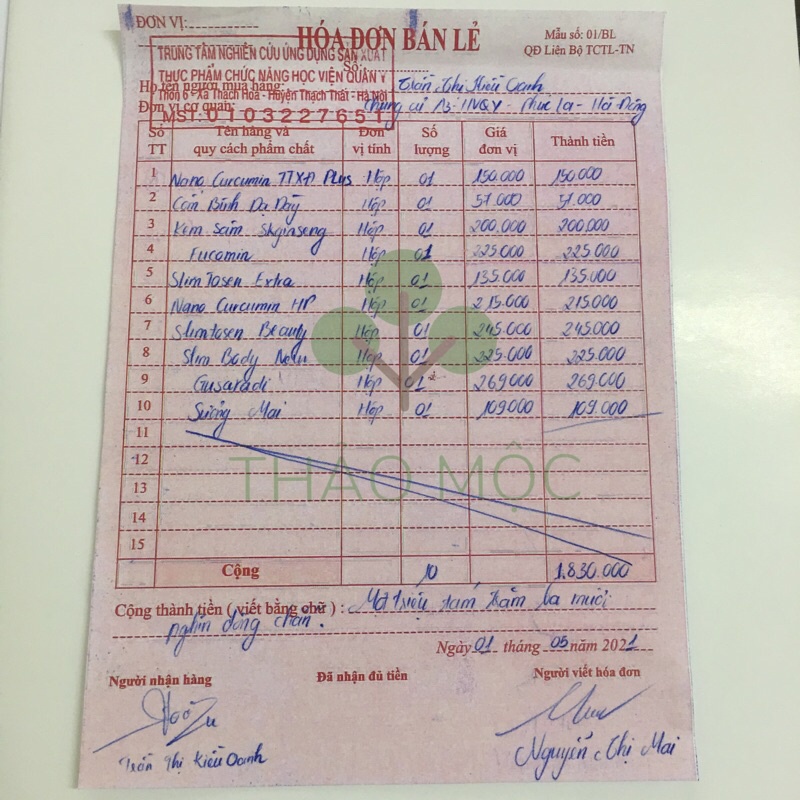 ĐƠN VỊ:
HÓA ĐƠN BÁN LẺ
Mẫu số: 01/BL
QĐ Liên Bộ TCTL-TN
Số:
TRUNG TÂM NGHIÊN CỨU ỨNG DỤNG SẢN XUẤT
THỰC PHẨM CHỨC NĂNG HỌC VIỆN QUÂN Y
Thôn 6 - Xã Thạch Hoà - Huyện Thạch Thất - Hà Nội
MST: 0103227651
Họ tên người mua hàng: Trần Thị Kiều Oanh
Đơn vị cơ quan: Chung cư A3-HVQY - Phúc La - Hà Đông
Số TT Tên hàng và quy cách phẩm chất Đơn vị tính Số lượng Giá đơn vị Thành tiền
1 Nano Curcumin TTXD Plus Hộp 01 150.000 150.000
2 Cán Bình Dạ Dày Hộp 01 57.000 57.000
3 Kem Sâm Shginseng Hộp 01 200.000 200.000
4 Fucomin Hộp 01 225.000 225.000
5 Slimtosen Extra Hộp 01 135.000 135.000
6 Nano Curcumin HP Hộp 01 215.000 215.000
7 Slimtosen Beauty Hộp 01 245.000 245.000
8 Slim Body New Hộp 01 225.000 225.000
9 Gusaradi Hộp 01 269.000 269.000
10 Sương Mai Hộp 01 109.000 109.000
11
12
THẢO MỘC
13
14
15
Cộng 10 1.830.000
Cộng thành tiền ( viết bằng chữ ) : Một triệu tám trăm ba mươi
nghìn đồng chẵn.
Ngày 01 tháng 05 năm 2021
Người nhận hàng Đã nhận đủ tiền Người viết hóa đơn
Trần Thị Kiều Oanh
Nguyễn Thị Mai